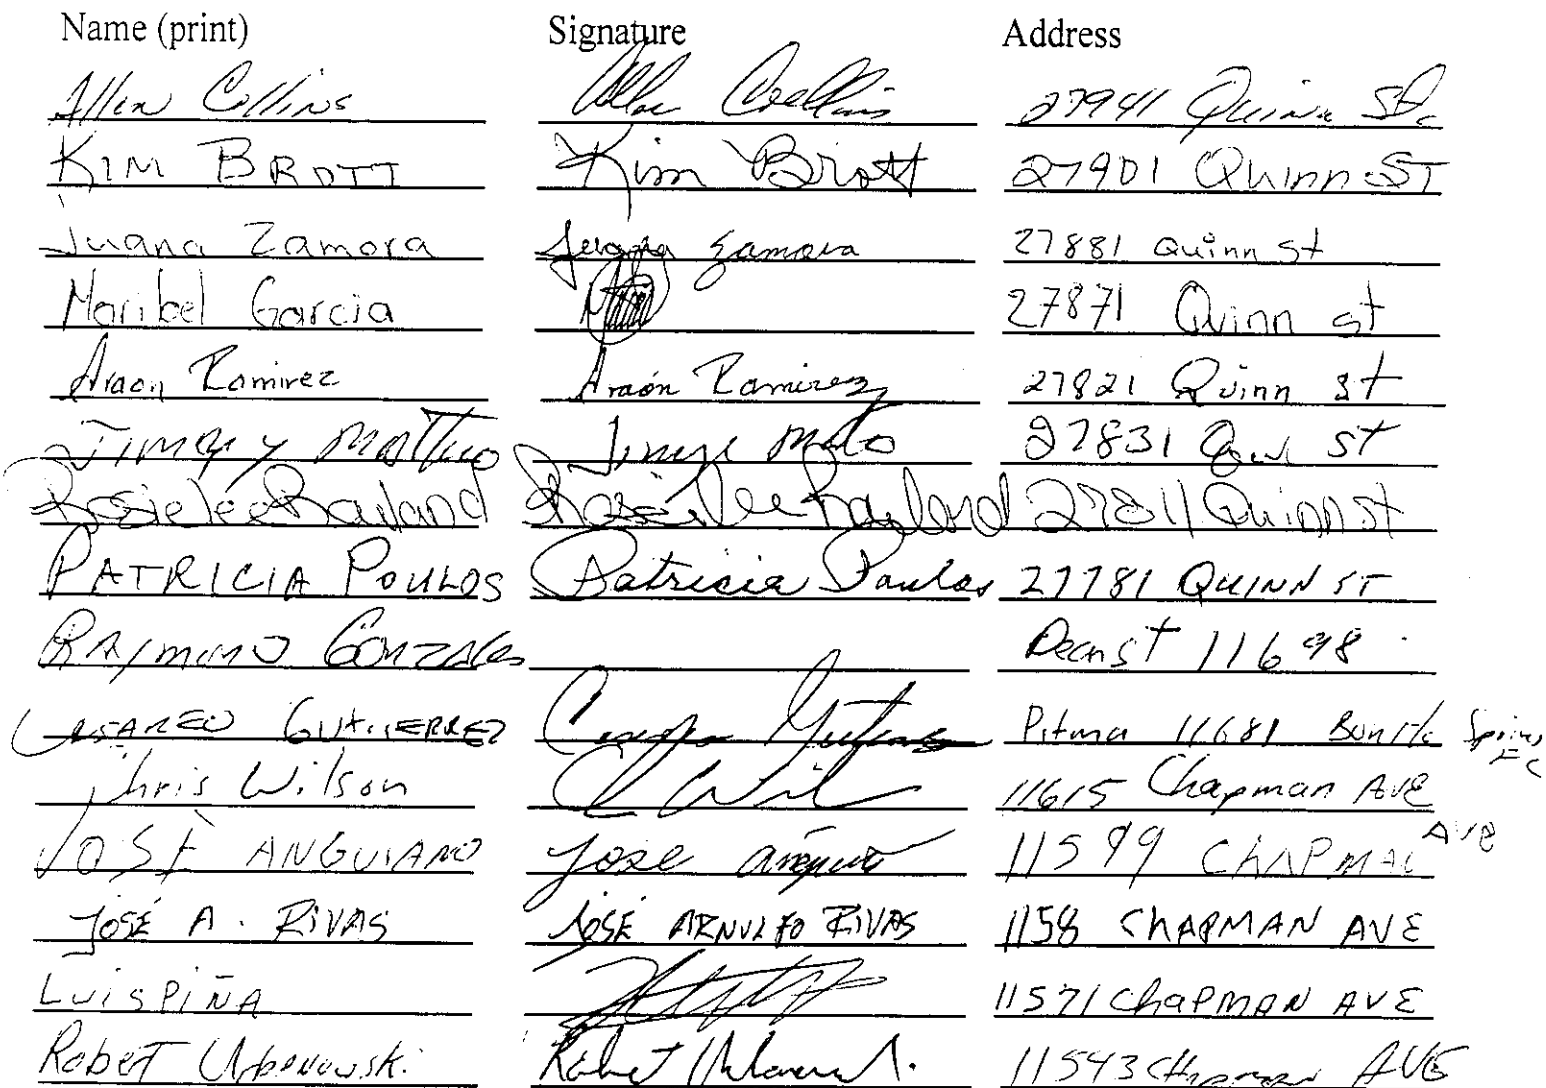 Name (print) Signature Address
Allen Collins Allen Collins 27941 Quinn St.
KIM BROTT Kim Brott 27901 Quinn ST
Juana Zamora Juana Zamora 27881 Quinn st
Maribel Garcia 27871 Quinn st
Araon Ramirez Araón Ramirez 27821 Quinn st
27831 st
Rosielee Rayland Rosielee Rayland 27811 Quinn st
PATRICIA POULOS Patricia Poulos 27781 QUINN ST
GONZALES Deanst 11698
CESAREO GUTIERREZ Pitma 11681 Bonita Springs
Chris Wilson 11615 Chapman AVE
JOSÉ ANGUIANO Jose 11599 CHAPMAN AVE
JOSÉ A. RIVAS JOSÉ ARNULFO RIVAS 1158 CHAPMAN AVE
LUIS PIÑA 11571 CHAPMAN AVE
Robert Robert 11543 Chapman AVE